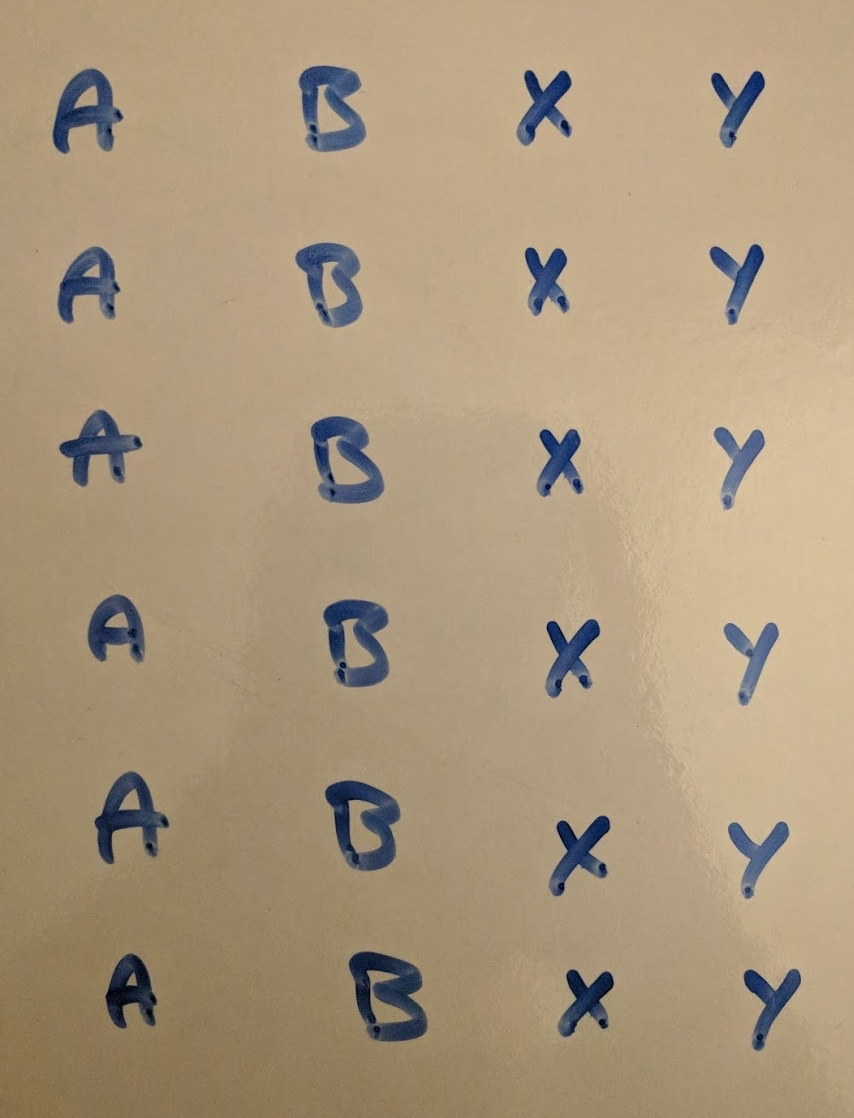 A B X Y
A B X Y
A B X Y
A B X Y
A B X Y
A B X Y